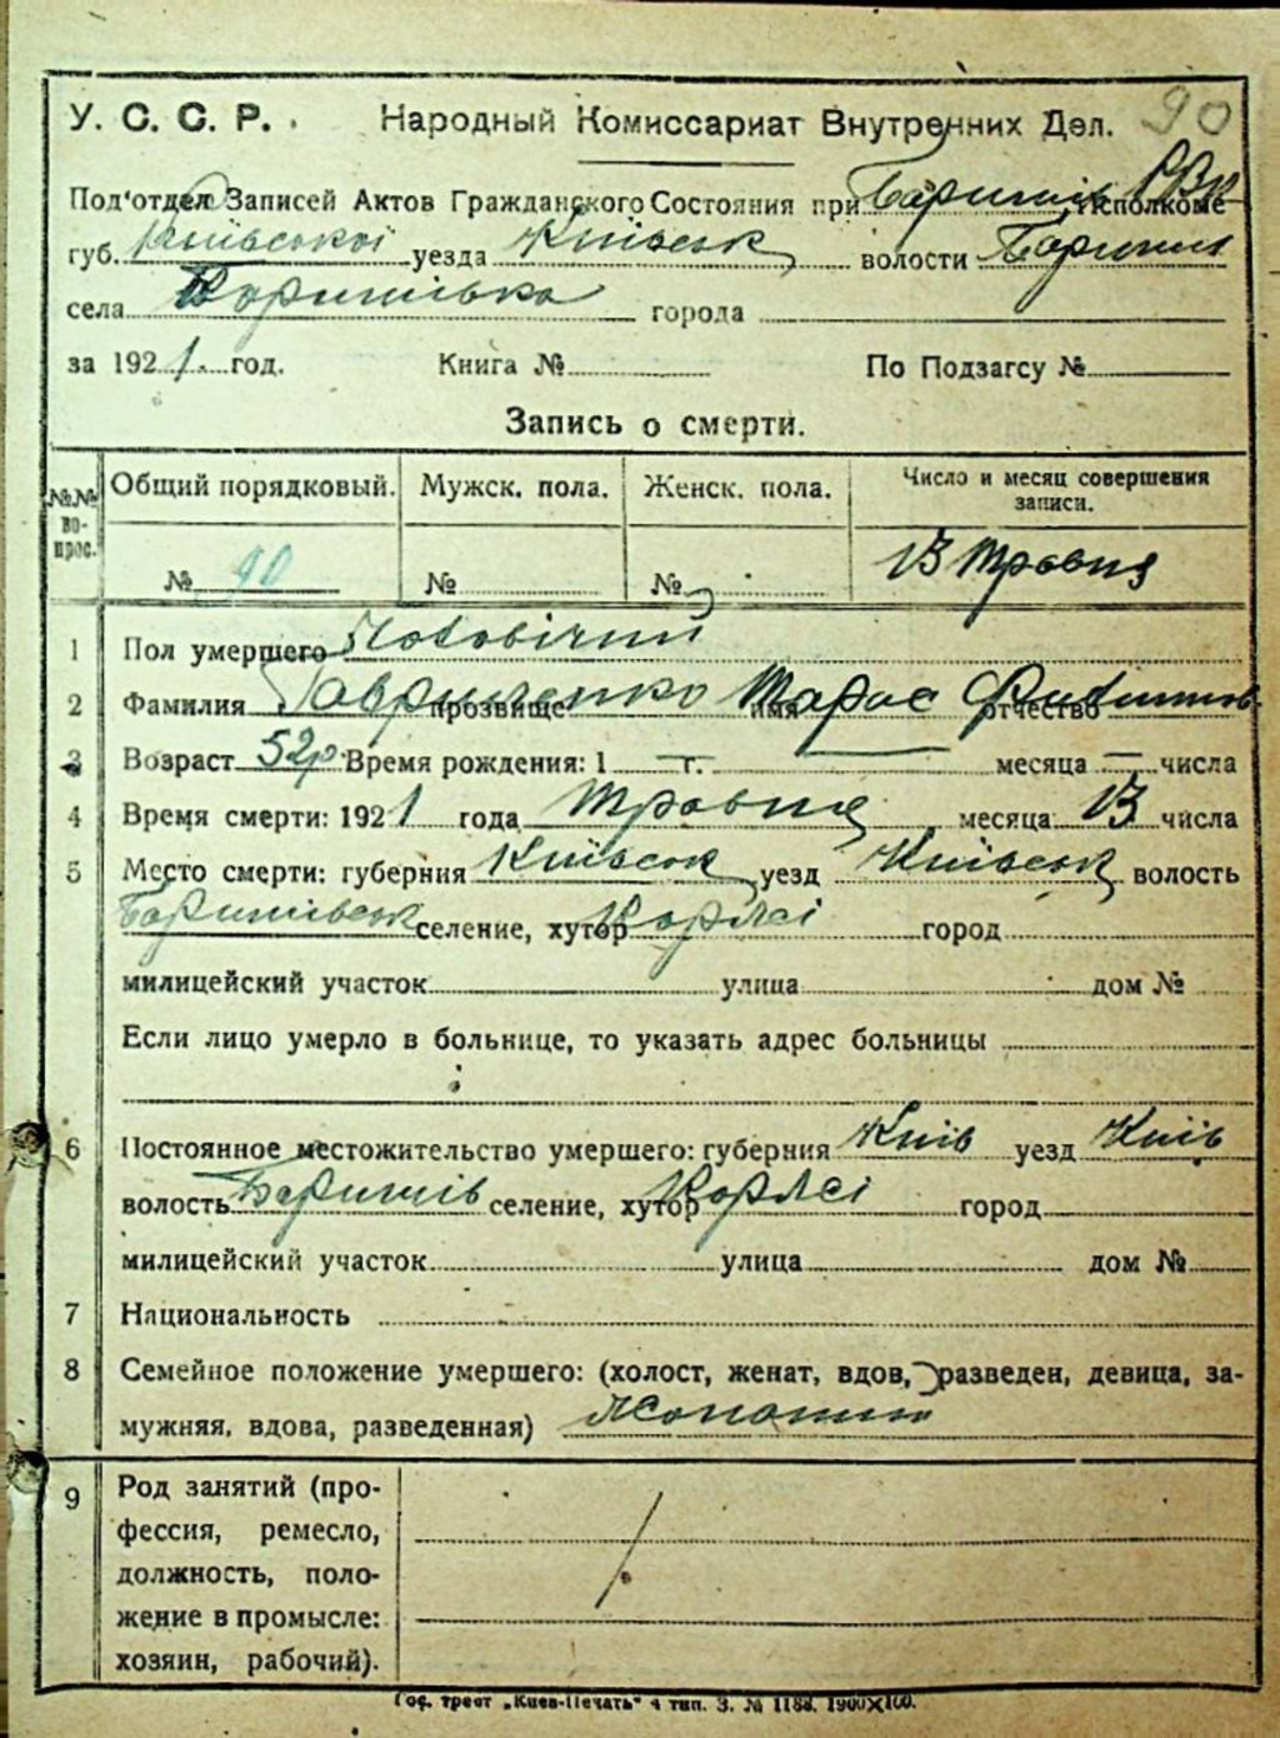 90
У. С. С. Р. Народный Комиссариат Внутренних Дел.
Под'отдел Записей Актов Гражданского Состояния при Баришів РВК Исполкоме
губ. Київської уезда Київськ волости Баришів
села Баришівка города
за 1921. год. Книга № По Подзагсу №
Запись о смерти.
№№ вопрос. Общий порядковый. Мужск. пола. Женск. пола. Число и месяц совершения записи.
№ 90 № № 13 травня
1 Пол умершего Чоловічий
2 Фамилия Гавриленко прозвище имя Тарас отчество
3 Возраст 52р. Время рождения: 1 — г. месяца — числа
4 Время смерти: 1921 года травня месяца 13 числа
5 Место смерти: губерния Київськ уезд Київськ волость
Баришівськ селение, хутор Коржі город
милицейский участок улица дом №
Если лицо умерло в больнице, то указать адрес больницы
6 Постоянное местожительство умершего: губерния Київ уезд Київ
волость Баришів селение, хутор Коржі город
милицейский участок улица дом №
7 Национальность
8 Семейное положение умершего: (холост, женат, вдов, разведен, девица, за-
мужняя, вдова, разведенная) Жонатий
9 Род занятий (про-
фессия, ремесло,
должность, поло-
жение в промысле:
хозяин, рабочий).
Гос. трест „Киев-Печать" 4 тип. З. № 1188. 1900Х100.